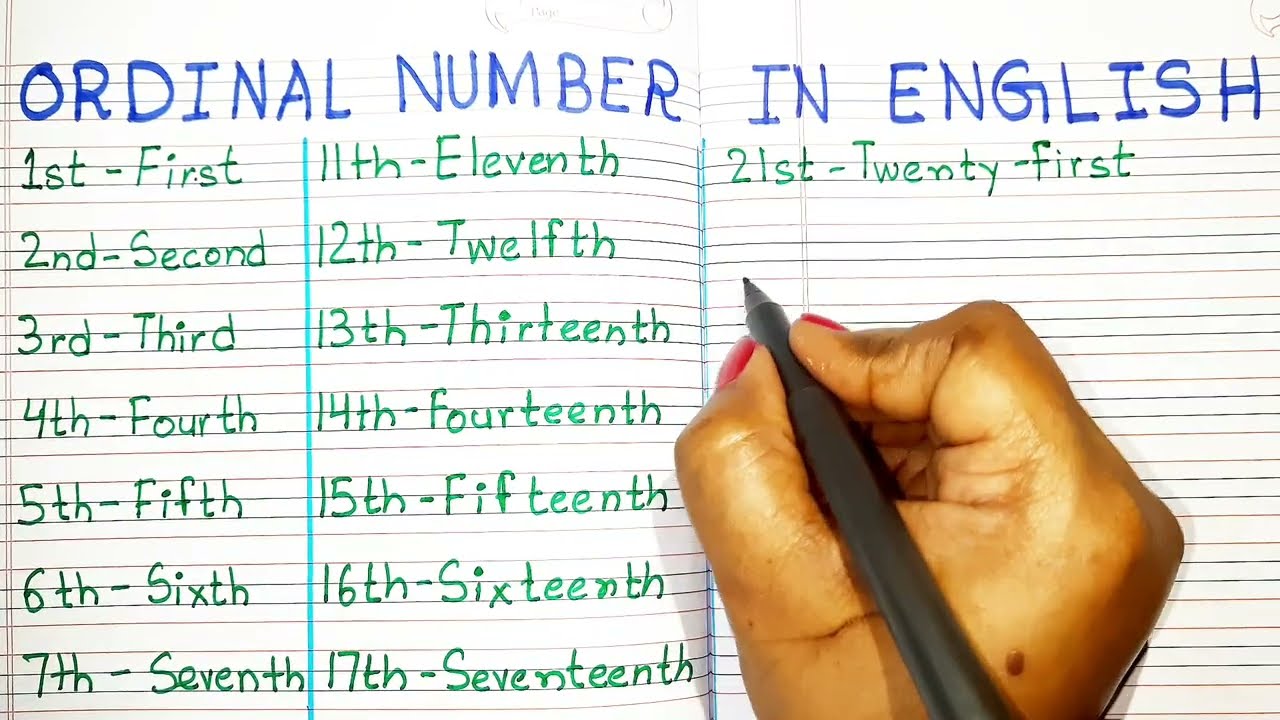 Page
ORDINAL NUMBER IN ENGLISH
1st - First
2nd - Second
3rd - Third
4th - Fourth
5th - Fifth
6th - Sixth
7th - Seventh
11th - Eleventh
12th - Twelfth
13th - Thirteenth
14th - Fourteenth
15th - Fifteenth
16th - Sixteenth
17th - Seventeenth
21st - Twenty - first